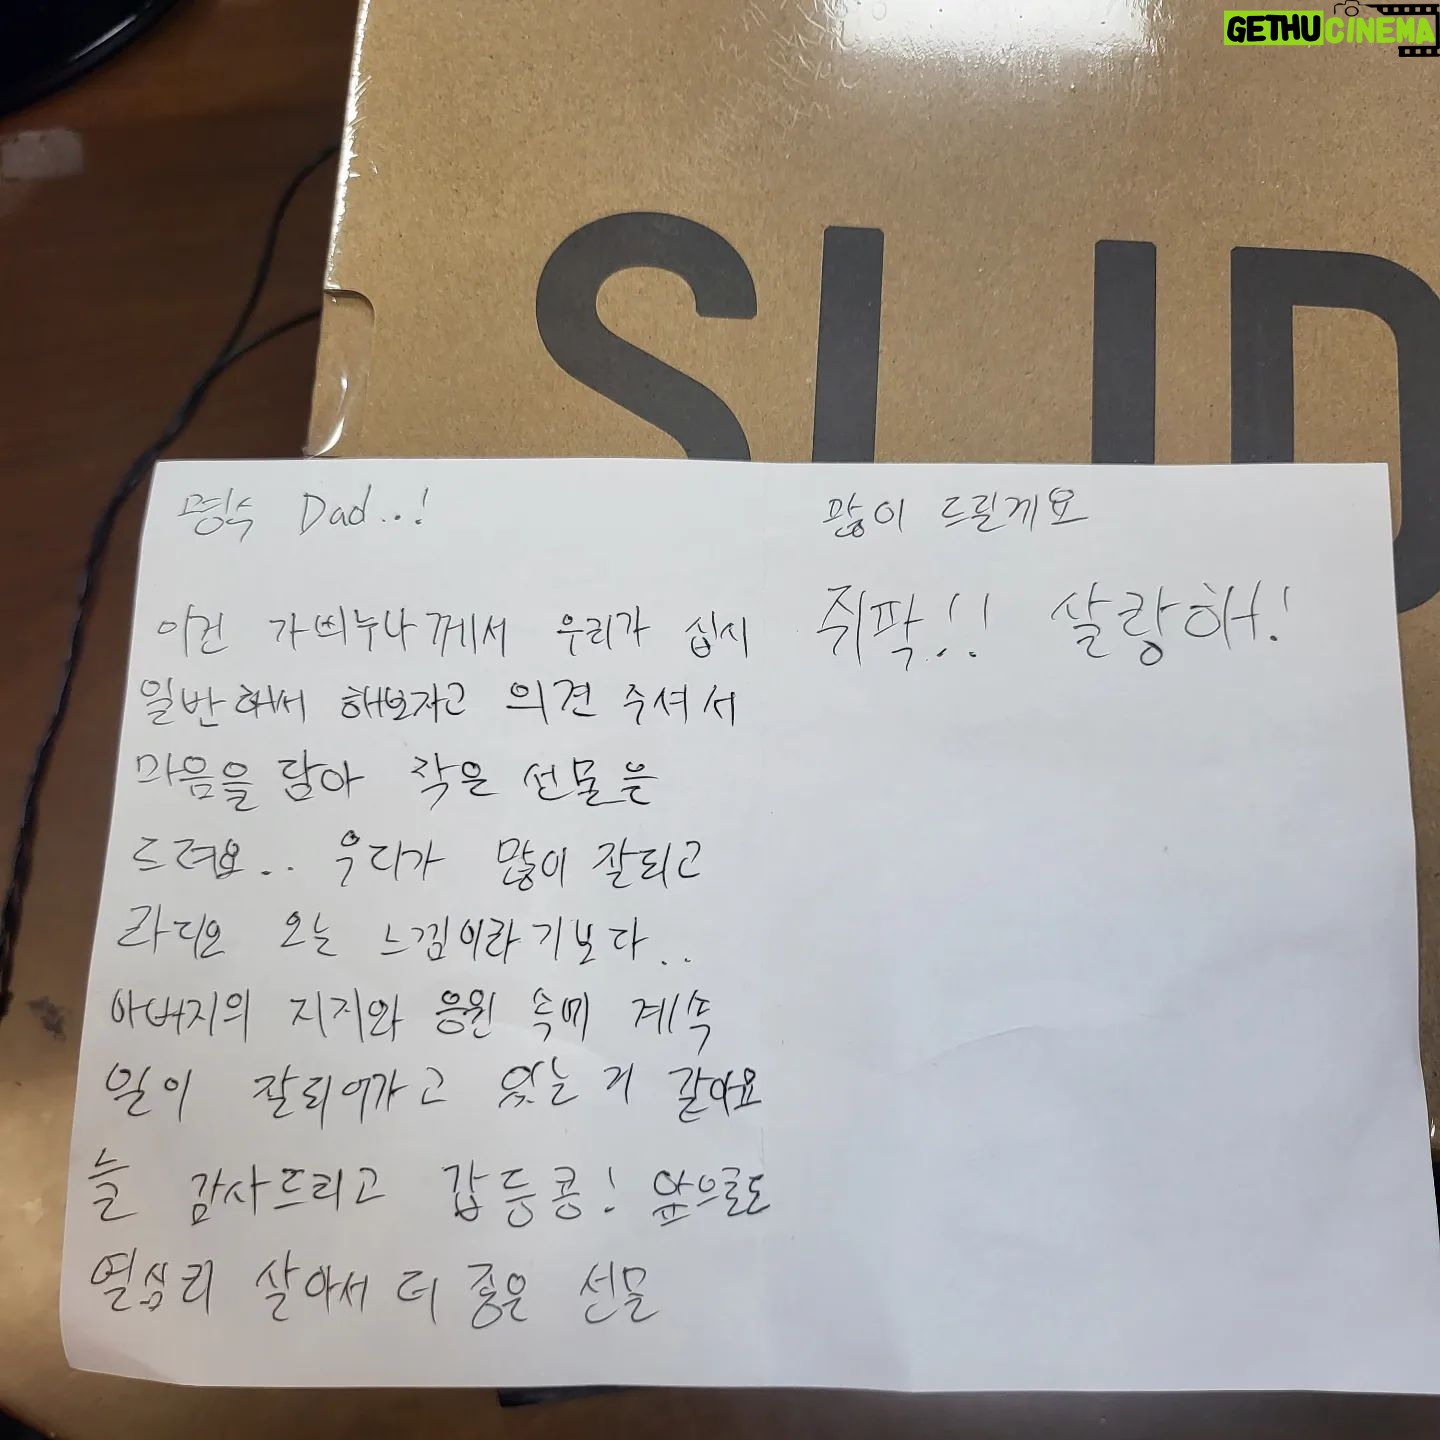 GETHUCINEMA
SLID
명수 Dad...!
이건 가삐누나께서 우리가 십시
일반해서 해보자고 의견 주셔서
마음을 담아 작은 선물은
드려요.. 우리가 많이 잘되고
라디오 오는 느낌이라기보다..
아버지의 지지와 응원 속에 계속
일이 잘되어가고 있는거 같아요
늘 감사드리고 갑등콩! 앞으로도
열심리 살아서 더 좋은 선물
많이 드릴게요
쥐팍!! 살랑해!